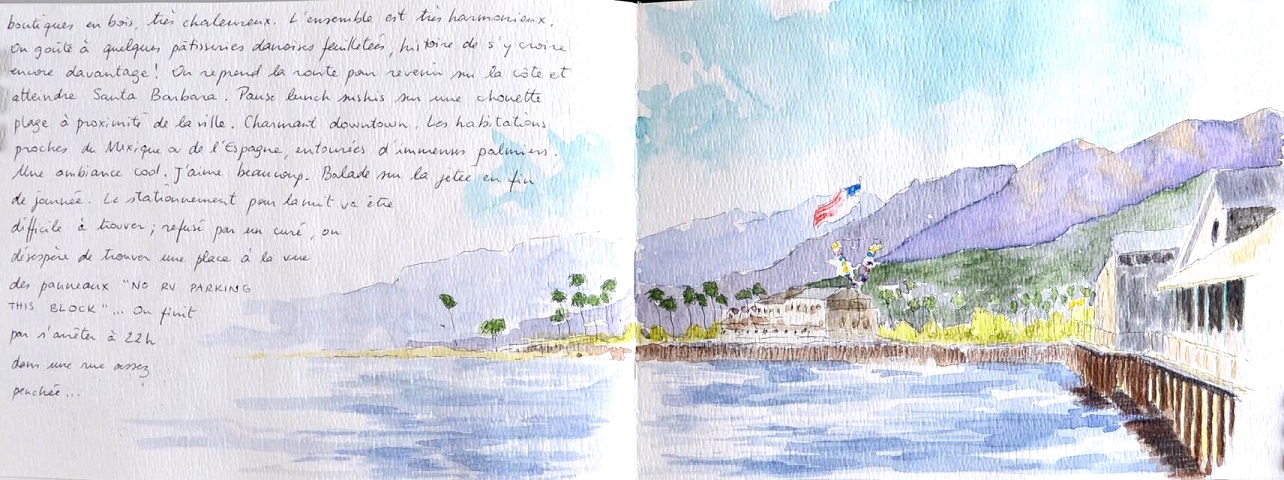 boutiques en bois, très chaleureux. L'ensemble est très harmonieux.
On goûte à quelques pâtisseries danoises feuilletées, histoire de s'y croire
encore davantage! On reprend la route pour revenir sur la côte et
atteindre Santa Barbara. Pause lunch sushis sur une chouette
plage à proximité de la ville. Charmant downtown. Les habitations
proches du Mexique ou de l'Espagne, entourées d'immenses palmiers.
Une ambiance cool. J'aime beaucoup. Balade sur la jetée en fin
de journée. Le stationnement pour la nuit va être
difficile à trouver ; refusé par un curé, on
désespère de trouver une place à la vue
des panneaux "NO RV PARKING
THIS BLOCK"... On finit
par s'arrêter à 22h
dans une rue assez
penchée...